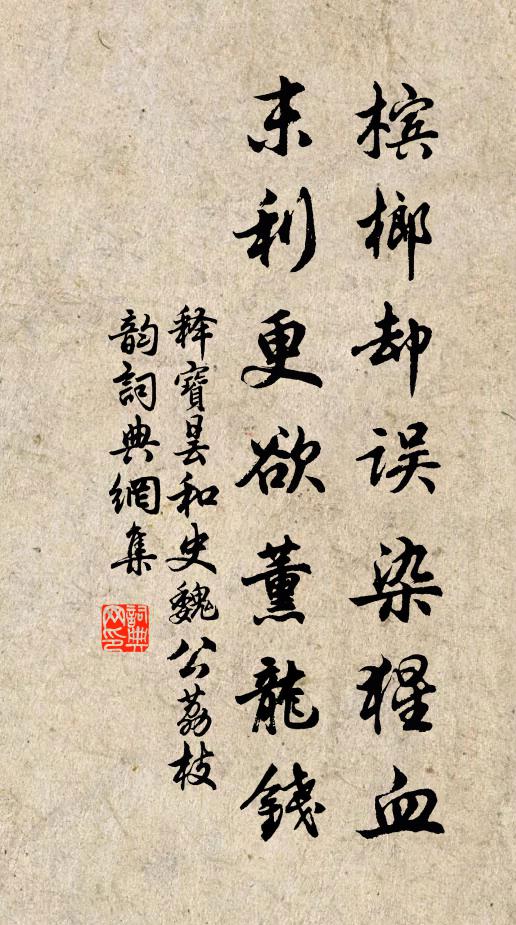 槟榔却误染猩血
末利更欲薰龍錢
释寶昙和史魏公荔枝
韵詞典網集
詞典网印